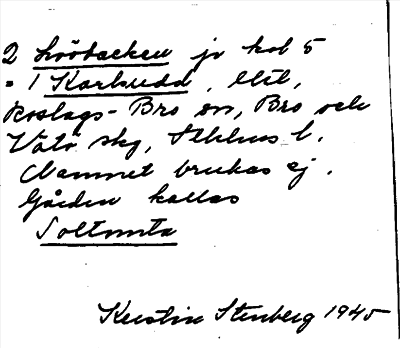 2 Lööbacken jr kol 5
" 1 Karlsudd, Utl,
Roslags-Bro sn, Bro och
Vätö skg, Sthlms l.
Namnet brukas ej.
Gården kallas
Soltomta
Kerstin Stenberg 1945